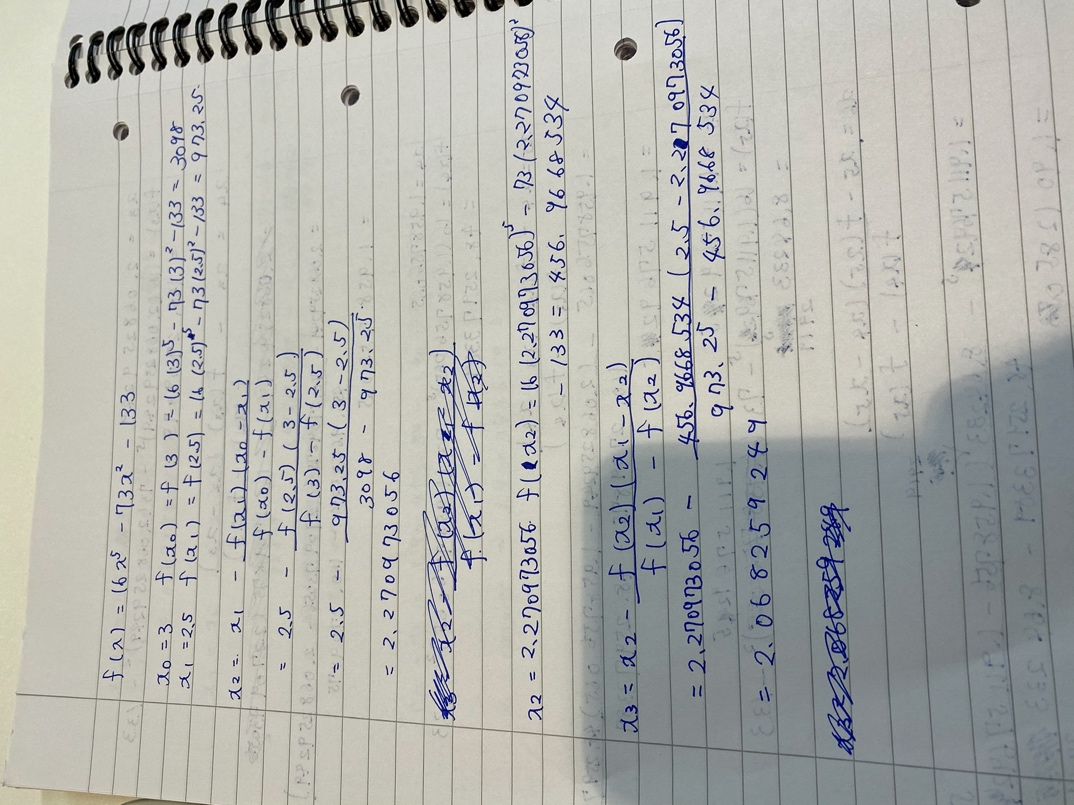 f(x) = 16x⁵ - 73x² - 133
x0 = 3 f(x0) = f(3) = 16(3)⁵ - 73(3)² - 133 = 3098
x1 = 2.5 f(x1) = f(2.5) = 16(2.5)⁵ - 73(2.5)² - 133 = 973.25
x2 = x1 - f(x1)(x0 - x1)
f(x0) - f(x1)
= 2.5 - f(2.5)(3 - 2.5)
f(3) - f(2.5)
= 2.5 - 973.25(3 - 2.5)
3098 - 973.25
= 2.270973056
x2 = 2.270973056 f(x2) = 16(2.270973056)⁵ - 73(2.270973056)²
- 133 = 456.9668534
x3 = x2 - f(x2)(x1 - x2)
f(x1) - f(x2)
= 2.270973056 - 456.9668534(2.5 - 2.270973056)
973.25 - 456.9668534
= 2.068259249